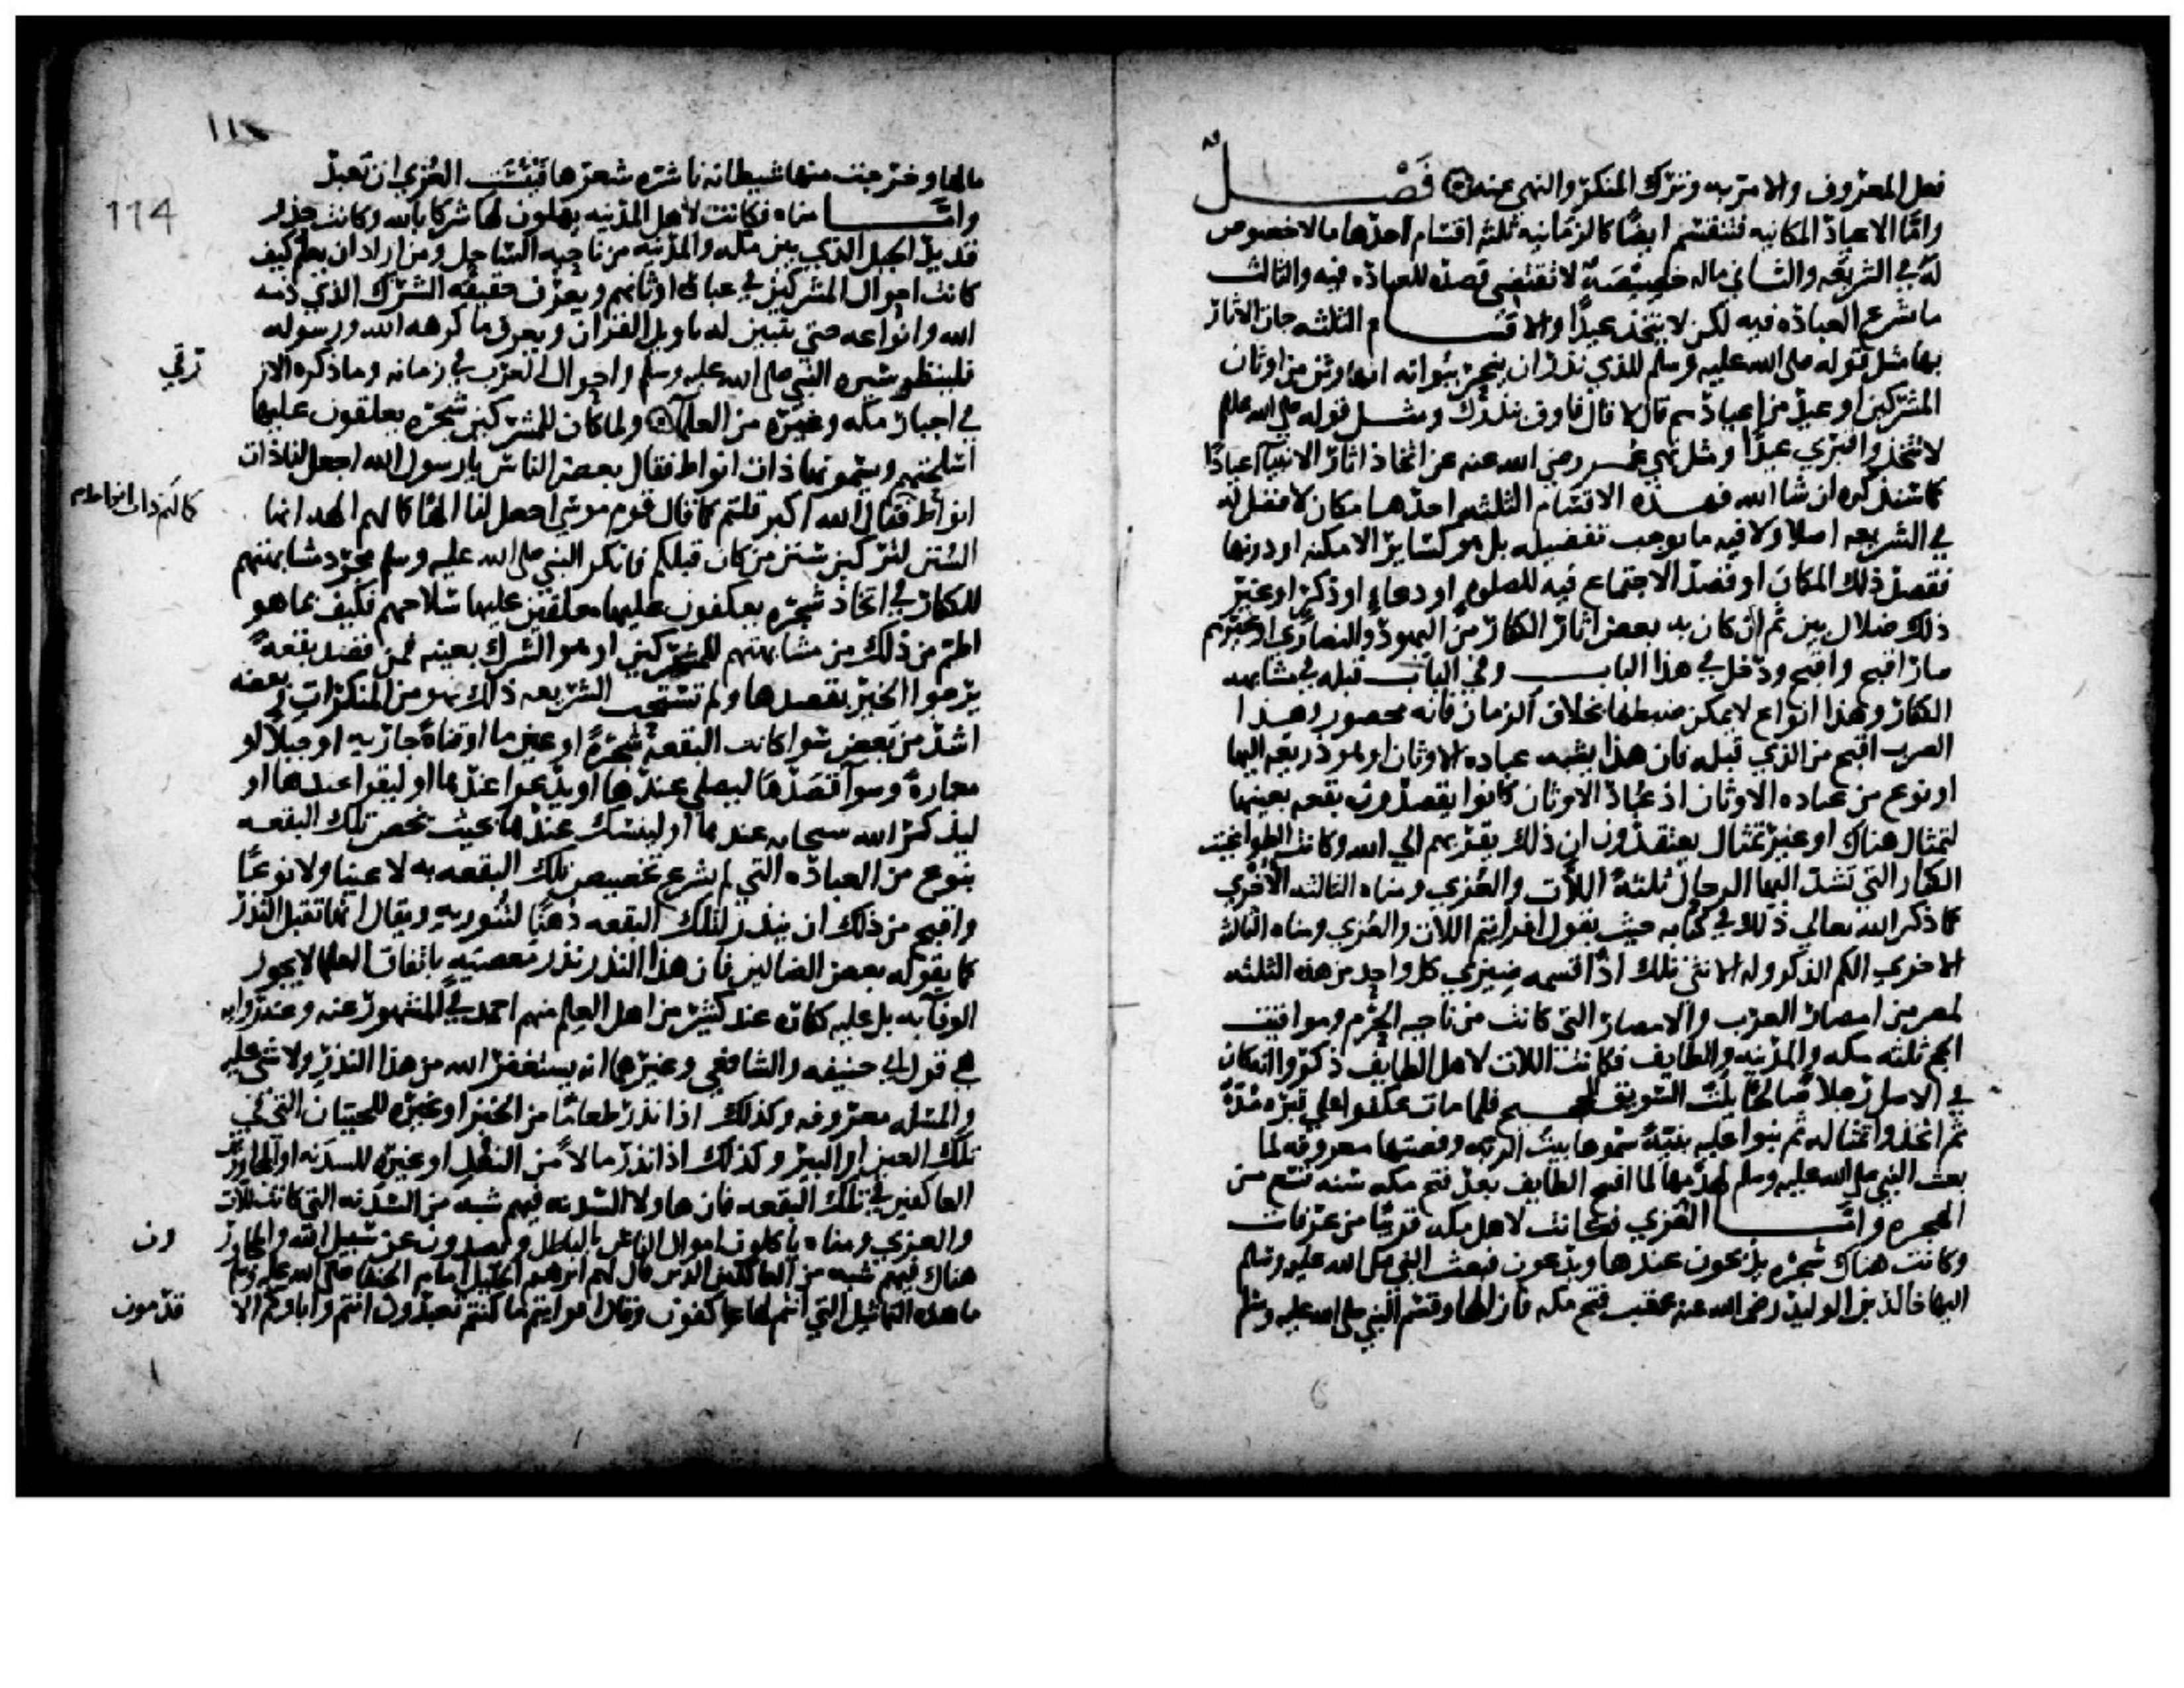 فعل المعروف والامر به وترك المنكر والنهي عنه ۞ فَصْــل
واما الاعياد المكانيه فتنقسم ايضا كالزمانيه ثلثه اقسام احدها ما لاخصوص
له في الشريعه والثاني ماله خصيصه لا تقتضي قصده للعباده فيه والثالث
ما شرع العباده فيه لكن لا يتخذ عيدا والاقسام الثلثه جات الاثار
بها مثل قوله صلى الله عليه وسلم للذي نذر ان ينحر ببوانه ابها وثن من اوثان
المشركين او عيد من اعيادهم قال لا قال فاوف بنذرك ومثل قوله صلى الله عليه وسلم
لا تتخذوا قبري عيدا ومثل نهي عمر رضي الله عنه عن اتخاذ اثار الانبيآ اعيادا
كما سنذكره ان شا الله فهذه الاقسام الثلثه احدها مكان لا فضل له
في الشريعه اصلا ولا فيه ما يوجب تفضيله بل هو كساير الامكنه او دونها
فقصد ذلك المكان او قصد الاجتماع فيه للصلوه او دعاء او ذكر او غير
ذلك ضلال بين ثم ان كان به بعض اثار الكفار من اليهود والنصارى او غيرهم
صار اقبح واقبح ودخل في هذا الباب وفي الباب قبله في مشابهه
الكفار وهذا انواع لا يمكن ضبطها بخلاف الزمان فانه محصور وهذا
الضرب اقبح من الذي قبله فان هذا يشبه عباده الاوثان او هو ذريعه اليها
او نوع من عباده الاوثان اذ عباد الاوثان كانوا يقصدون بقعه بعينها
لتمثال هناك او غير تمثال يعتقدون ان ذلك يقربهم الي الله وكانت الطواغيت
الكبار التي تشد اليها الرحال ثلثة اللات والعزي ومناه الثالثه الاخري
كما ذكر الله تعالى ذلك في كتابه حيث يقول افرايتم اللات والعزي ومناه الثالثه
الاخري الكم الذكر وله الانثي تلك اذا قسمه ضيزي كل واحد من هذه الثلثه
لمصر من امصار العرب والامصار التي كانت من ناحيه الحرم ومواقيت
الحج ثلثه مكه والمدينه والطايف فكانت اللات لاهل الطايف ذكروا انه كان
في الاصل رجلا صالحا يلت السويق للحجيج فلما مات عكفوا علي قبره مدة
ثم اتخذوا تمثاله ثم بنوا عليه بنية سموها بيت الربه وقصتها معروفه لما
بعث النبي صلى الله عليه وسلم لهدمها لما افتح الطايف بعد فتح مكه سنه تسع من
الهجره وامــا العزي فكانت لاهل مكه قريبا من عرفات
وكانت هناك شجره يذبحون عندها ويدعون فبعث النبي صلى الله عليه وسلم
اليها خالد بن الوليد رضي الله عنه عقيب فتح مكه فازالها وقسم النبي صلى الله عليه وسلم
١١٤
114
مالها وخرجت منها شيطانه ناشره شعرها فيئست العزي ان تعبد
وامــا مناه فكانت لاهل المدينه يهلون لها شركا بالله وكانت حذو
قديد الجبل الذي بين مكه والمدينه من ناحيه الساحل ومن اراد ان يعلم كيف
كانت احوال المشركين في عباده اوثانهم ويعرف حقيقه الشرك الذي ذمه
الله وانواعه حتي يتبين له تاويل القران ويعرف ما كرهه الله ورسوله
فلينظر سيره النبي صلى الله عليه وسلم واحوال العرب في زمانه وما ذكره الاز
رقي
في اخبار مكه وغيره من العلمآ ۞ ولما كان للمشركين شجره يعلقون عليها
اسلحتهم ويسمونها ذات انواط فقال بعض الناس يا رسول الله اجعل لنا ذات
انواط فقال الله اكبر قلتم كما قال قوم موسي اجعل لنا الها كما لهم الهه انها
كما لهم ذات انواط
السنن لتركبن سنن من كان قبلكم فانكر النبي صلى الله عليه وسلم مجرد مشابهتهم
للكفار في اتخاذ شجره يعكفون عليها معلقين عليها سلاحهم فكيف بما هو
اطم من ذلك من مشابهتهم للمشركين او هو الشرك بعينه فمن قصد بقعة
يرجوا الخير بقصدها ولم تستحب الشريعه ذلك فهو من المنكرات وبعضه
اشد من بعض سوا كانت البقعة شجرة او عين ما او قناة جاريه او جبلا او
مغارة وسوآ قصدها ليصلي عندها او يدعوا عندها او ليقرا عندها او
ليذكر الله سبحانه عندها او لينسك عندها بحيث تخص تلك البقعه
بنوع من العباده التي لم يشرع تخصيص تلك البقعه به لا عينا ولا نوعا
واقبح من ذلك ان ينذر لتلك البقعه دهنا لتنور به ويقال انها تقبل النذر
كما يقوله بعض الضالين فان هذا النذر نذر معصيه باتفاق العلما لا يجوز
الوفآ به بل عليه كفاره عند كثير من اهل العلم منهم احمد في المشهور عنه وعنه روايه
هي قول ابي حنيفه والشافعي وغيرهما انه يستغفر الله من هذا النذر ولا شي عليه
والمسله معروفه وكذلك اذا نذر طعاما من الخبز او غيره للحيتان التي في
تلك العين او البير وكذلك اذا نذر مالا من النقد او غيره للسدنه او المجاورين
العاكفين في تلك البقعه فان هاولا السدنه فيهم شبه من السدنه التي كانت للات
والعزي ومناه ياكلون اموال الناس بالباطل ويصدون عن سبيل الله والمجاور
ون
هناك فيهم شبه من العاكفين الذين قال لهم ابرهيم الخليل امام الحنفا صلى الله عليه وسلم
ما هذه التماثيل التي انتم لها عاكفون وقال افرايتم ما كنتم تعبدون انتم واباوكم الا
قدمون